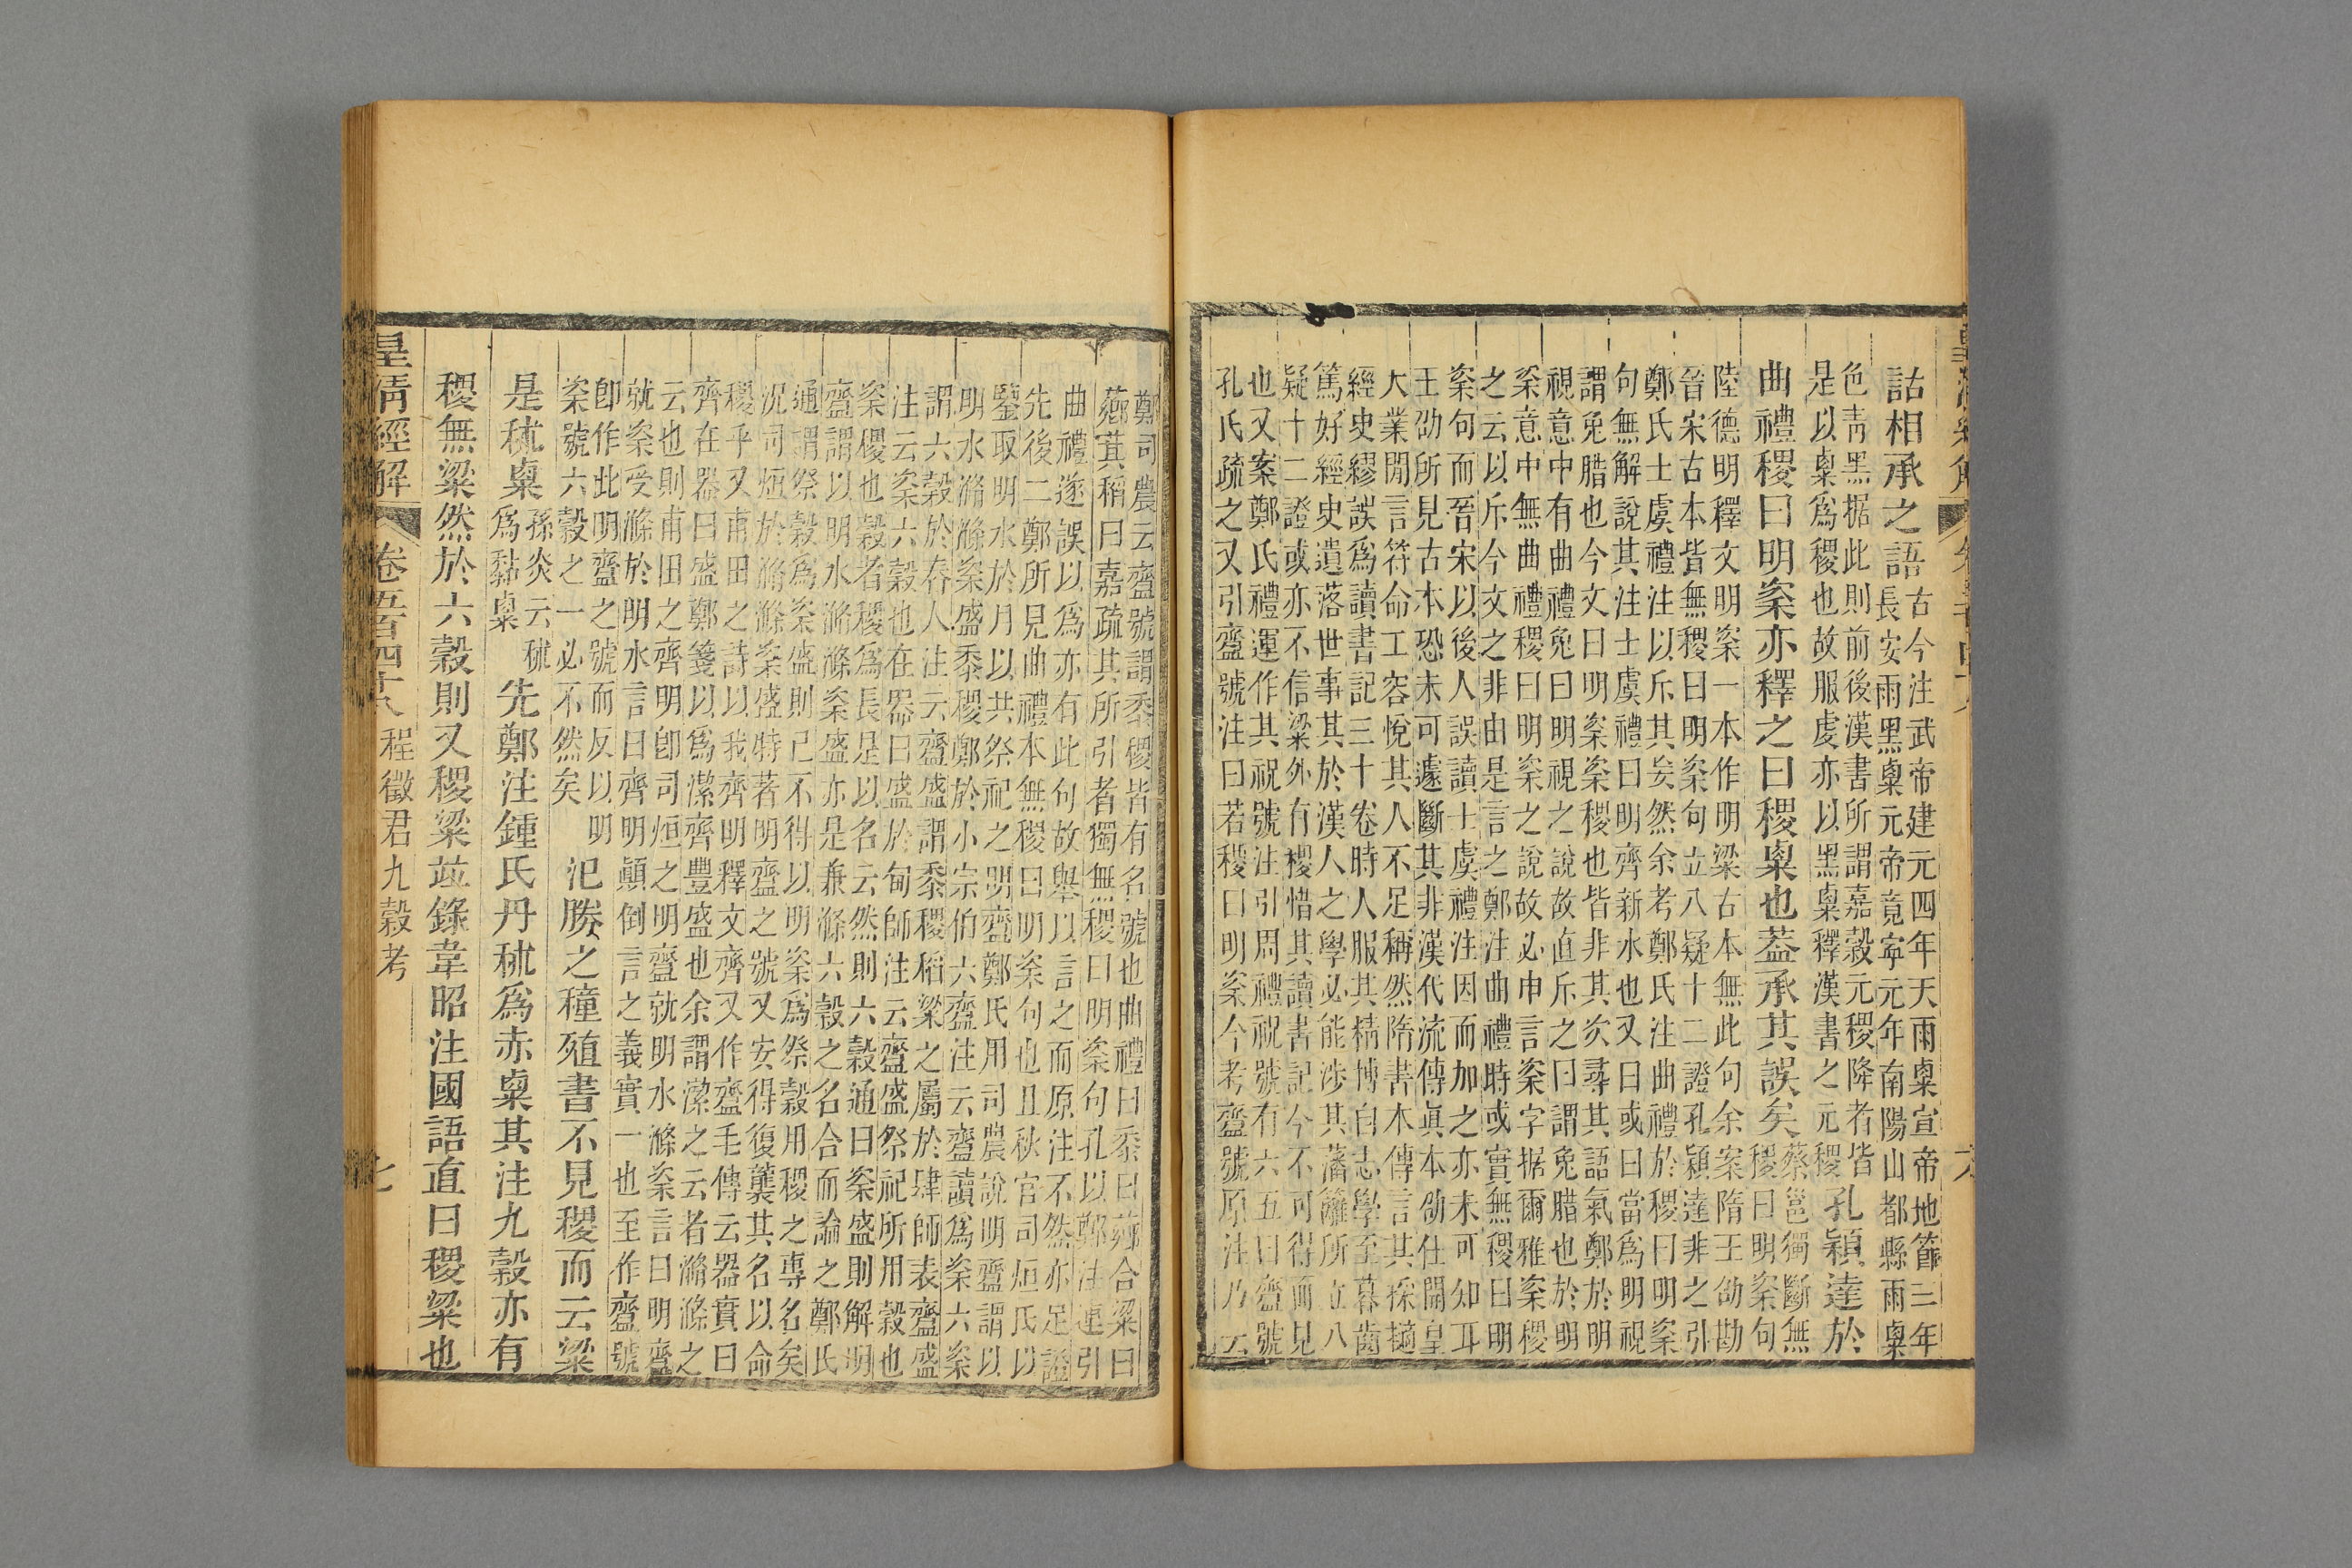 詁相承之語
古今注武帝建元四年天雨粟宣帝地節三年
長安雨黑粟元帝竟寧元年南陽山都縣雨粟
色靑黑据此則前後漢書所謂嘉穀元稷降者皆
是以粟爲稷也故服虔亦以黑粟釋漢書之元稷
孔穎達於
曲禮稷曰明粢亦釋之曰稷粟也葢承其誤矣
蔡邕獨斷無
稷曰明粢句
陸德明釋文明粢一本作明粱古本無此句余案隋王劭勘
晉宋古本皆無稷曰明粢句立八疑十二證孔穎達非之引
鄭氏士虞禮注以斥其妄然余考鄭氏注曲禮於稷曰明粢
句無解說其注士虞禮曰明齊新水也又曰或曰當爲明視
謂兔腊也今文曰明粢粢稷也皆非其次尋其語氣鄭於明
視意中有曲禮兔曰明視之說故直斥之曰謂兔腊也於明
粢意中無曲禮稷曰明粢之說故必申言粢字据爾雅粢稷
之云以斥今文之非由是言之鄭注曲禮時或實無稷曰明
粢句而晉宋以後人誤讀士虞禮注因而加之亦未可知耳
王劭所見古本恐未可遽斷其非漢代流傳眞本劭仕開皇
大業閒言符命工容悅其人不足稱然隋書本傳言其採擿
經史繆誤爲讀書記三十卷時人服其精博自志學至暮齒
篤好經史遺落世事其於漢人之學必能涉其藩籬所立八
疑十二證或亦不信粱外有稷惜其讀書記今不可得而見
也又案鄭氏禮運作其祝號注引周禮祝號有六五曰齍號
孔氏疏之又引齍號注曰若稷曰明粢今考齍號原注乃云
鄭司農云齍號謂黍稷皆有名號也曲禮曰黍曰薌合粱曰
薌萁稻曰嘉疏其所引者獨無稷曰明粢句孔以鄭注連引
曲禮遂誤以爲亦有此句故舉以言之而原注不然亦足證
先後二鄭所見曲禮本無稷曰明粢句也且秋官司烜氏以
鑒取明水於月以共祭祀之明齍鄭氏用司農說明齍謂以
明水滫滌粢盛黍稷鄭於小宗伯六齍注云齍讀爲粢六粢
謂六穀於舂人注云齍盛謂黍稷稻粱之屬於肆師表齍盛
注云粢六穀也在器曰盛於甸師注云齍盛祭祀所用穀也
粢稷也穀者稷爲長是以名云然則六穀通曰粢盛則解明
齍謂以明水滫滌粢盛亦是兼滌六穀之名合而論之鄭氏
通謂祭穀爲粢盛則已不得以明粢爲祭穀用稷之專名矣
況司烜於滫滌粢盛特著明齍之號又安得復襲其名以命
稷乎又甫田之詩以我齊明釋文齊又作齍毛傳云器實曰
齊在器曰盛鄭箋以爲潔齊豐盛也余謂潔之云者滫滌之
云也則甫田之齊明卽司烜之明齍就明水滌粢言曰明齍
就粢受滌於明水言曰齊明顚倒言之義實一也至作齍號
卽作此明齍之號而反以明
粢號六穀之一必不然矣
氾勝之種殖書不見稷而云粱
是秫粟
孫炎云秫
爲黏粟
先鄭注鍾氏丹秫爲赤粟其注九穀亦有
稷無粱然於六穀則又稷粱竝錄韋昭注國語直曰稷粱也
皇淸經解 卷五百四十八 程徵君九穀考 七